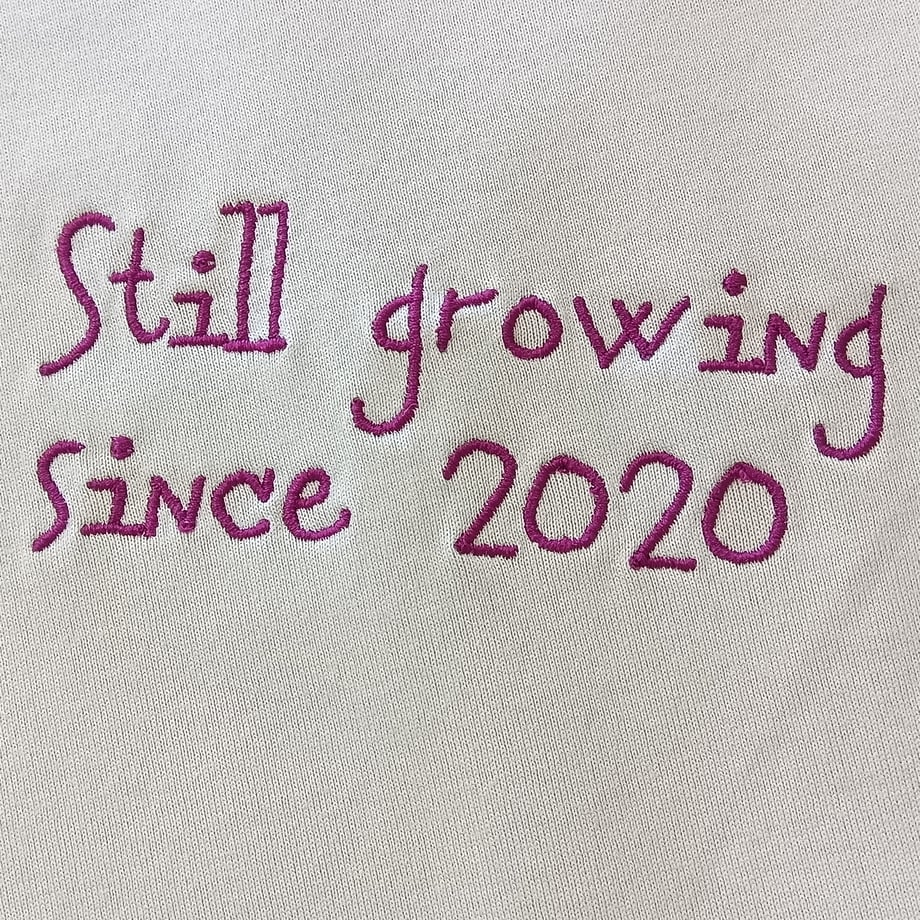 Still growing
Since 2020